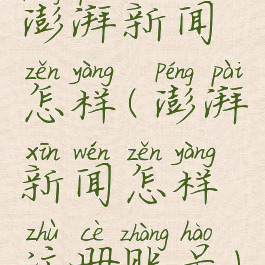 澎湃新闻
zěn yàng Péng pài
怎样(澎湃
xīn wén zěn yàng
新闻怎样
zhù cè zhàng hào
注册账号)